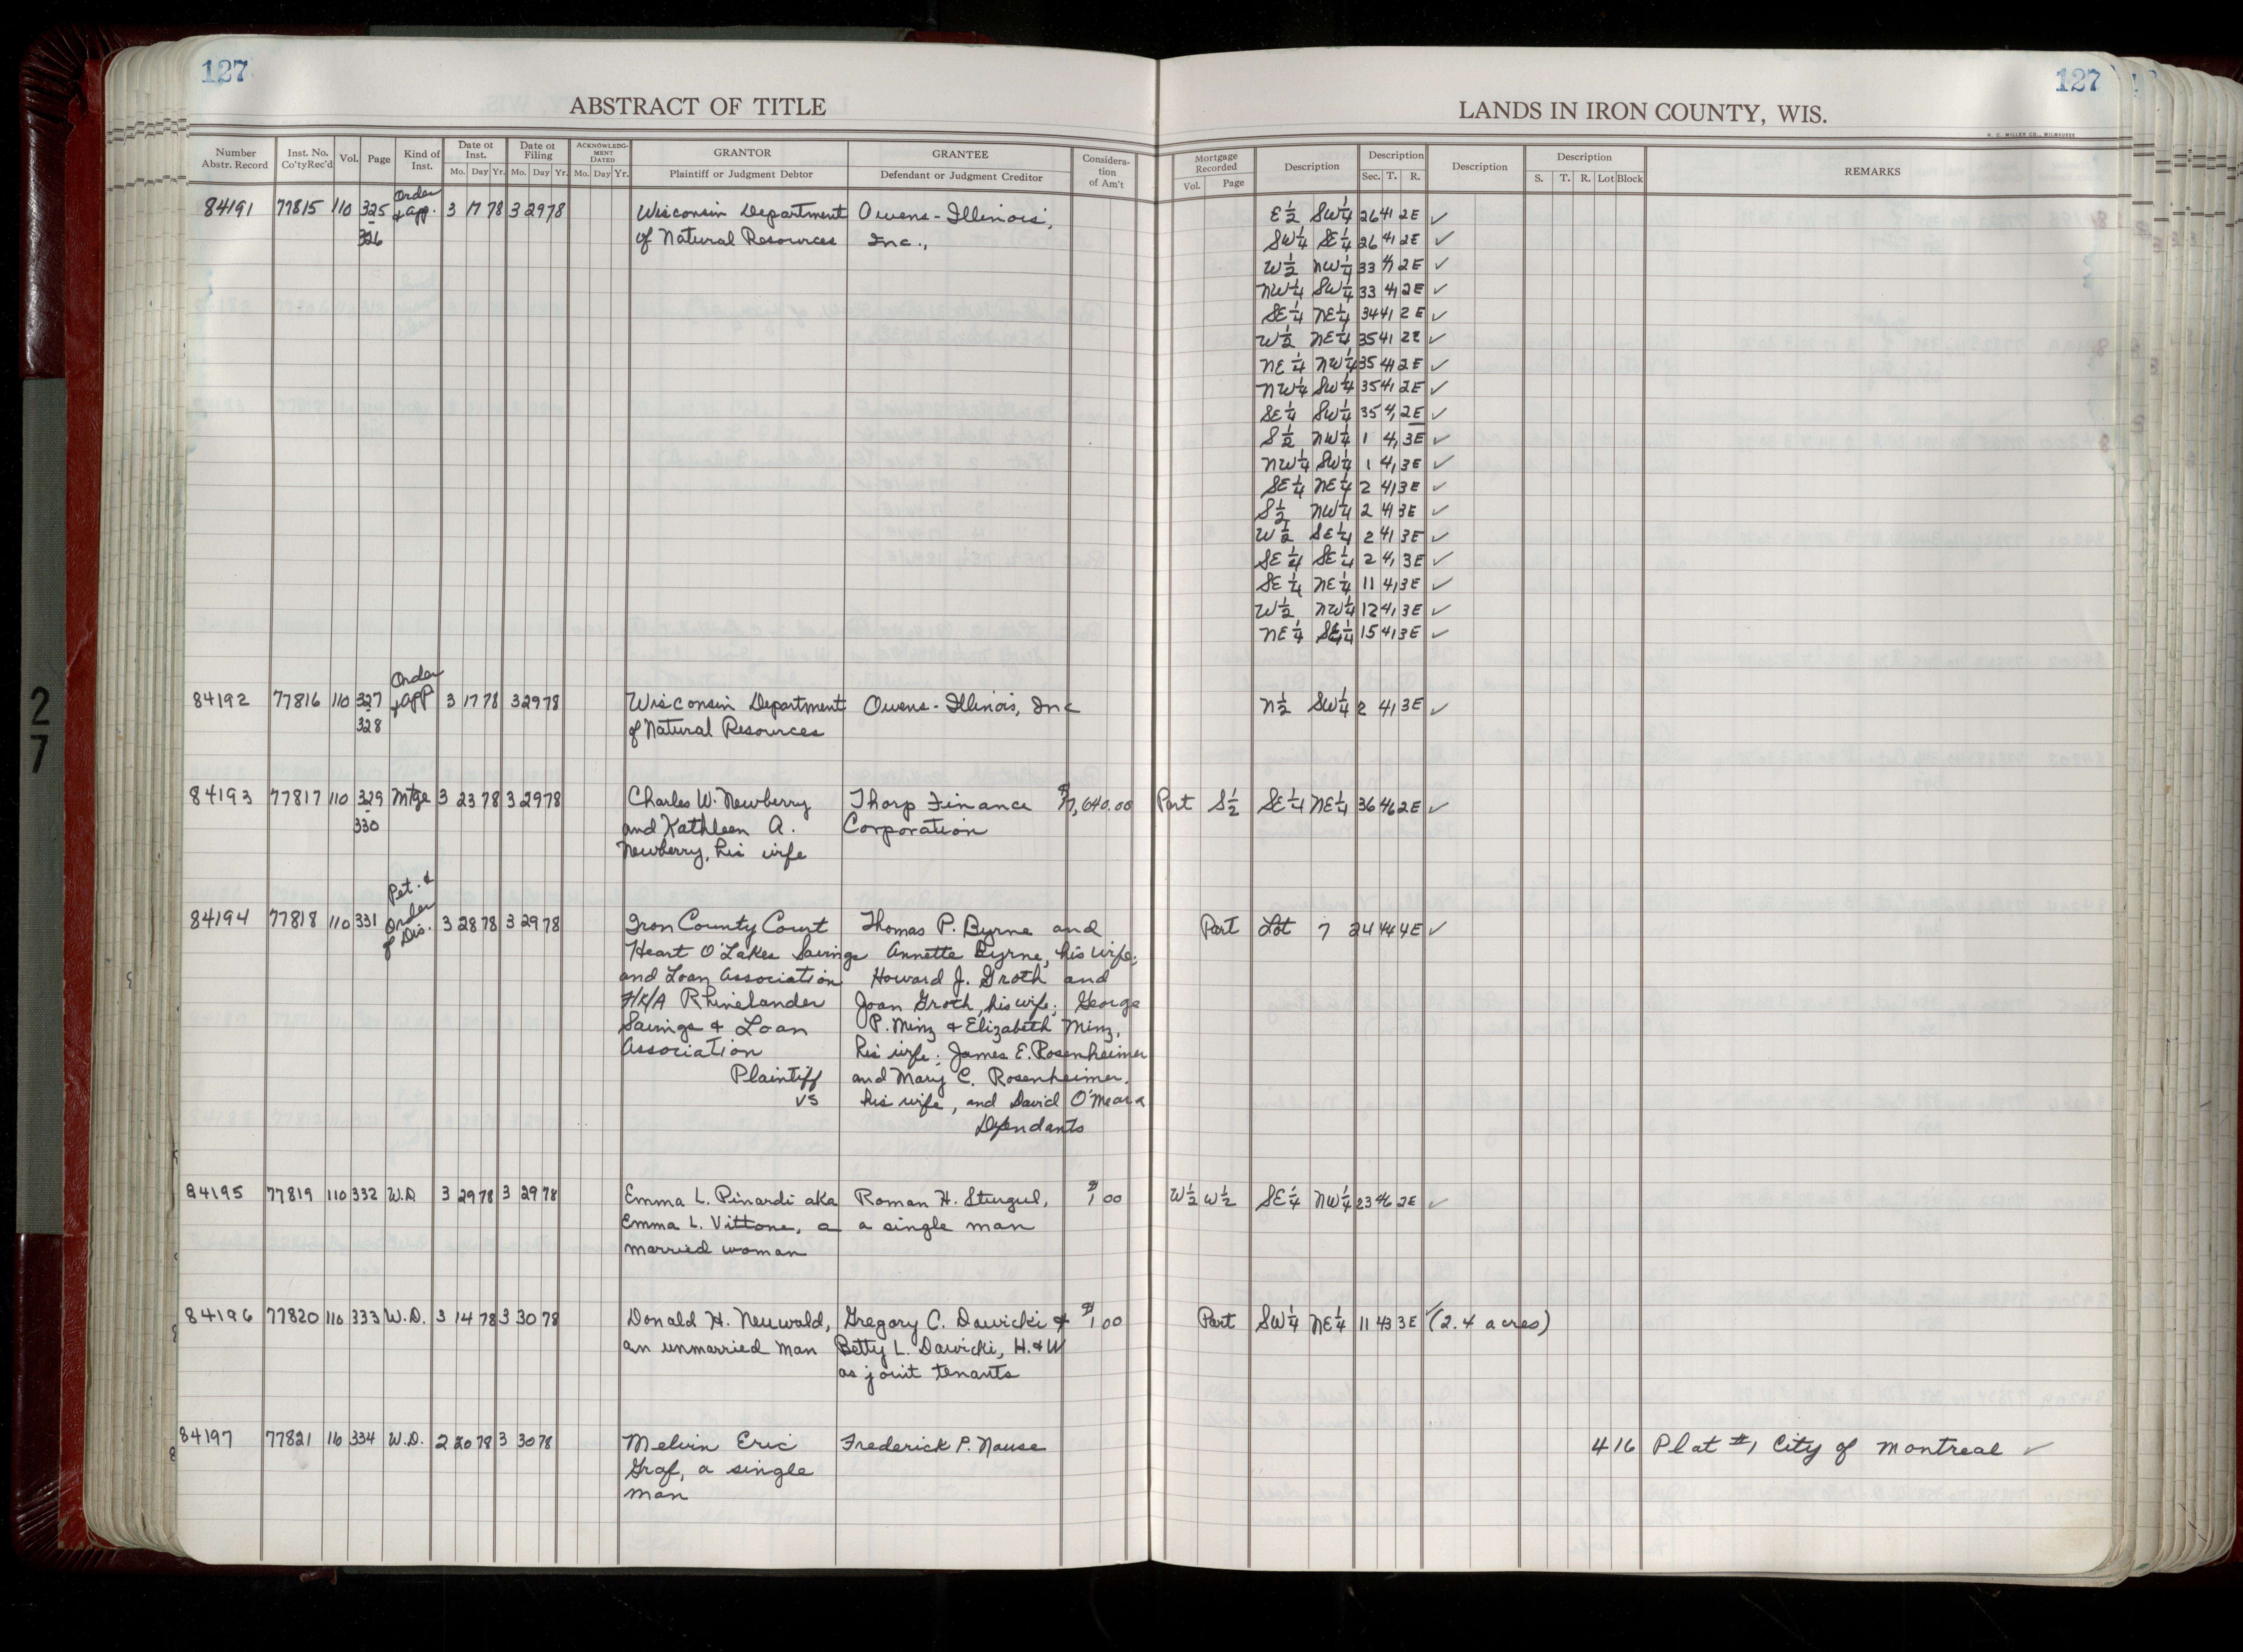 127
127
ABSTRACT OF TITLE
LANDS IN IRON COUNTY, WIS.
H. C. MILLER CO., MILWAUKEE
Number Abstr. Record
Inst. No. Co'tyRec'd
Vol.
Page
Kind of Inst.
Date of Inst. Mo. Day Yr.
Date of Filing Mo. Day Yr.
ACKNOWLEDGMENT DATED Mo. Day Yr.
GRANTOR Plaintiff or Judgment Debtor
GRANTEE Defendant or Judgment Creditor
Consideration of Am't
Mortgage Recorded Vol. Page
Description
Description Sec. T. R.
Description
Description S. T. R. Lot Block
REMARKS
84191 77815 110 325 Order & App. 3 17 78 3 29 78 Wisconsin Department Owens-Illinois, E½ SW¼ 26 41 2E ✓
326 of Natural Resources Inc., SW¼ SE¼ 26 41 2E ✓
W½ NW¼ 33 41 2E ✓
NW¼ SW¼ 33 41 2E ✓
SE¼ NE¼ 34 41 2E ✓
W½ NE¼ 35 41 2E ✓
NE¼ NW¼ 35 41 2E ✓
NW¼ SW¼ 35 41 2E ✓
SE¼ SW¼ 35 41 2E ✓
S½ NW¼ 1 41 3E ✓
NW¼ SW¼ 1 41 3E ✓
SE¼ NE¼ 2 41 3E ✓
S½ NW¼ 2 41 3E ✓
W½ SE¼ 2 41 3E ✓
SE¼ SE¼ 2 41 3E ✓
SE¼ NE¼ 11 41 3E ✓
W½ NW¼ 12 41 3E ✓
NE¼ SE¼ 15 41 3E ✓
84192 77816 110 327 Order & App 3 17 78 3 29 78 Wisconsin Department Owens-Illinois, Inc N½ SW¼ 2 41 3E ✓
328 of Natural Resources
84193 77817 110 329 Mtge 3 23 78 3 29 78 Charles W. Newberry Thorp Finance Part S½ SE¼ NE¼ 36 46 2E ✓
330 and Kathleen A. Corporation
Newberry, his wife
84194 77818 110 331 Pet. & Order of Dis. 3 28 78 3 29 78 Iron County Court Thomas P. Byrne and Part Lot 7 24 44 4E ✓
Heart O'Lakes Savings Annette Byrne, his wife;
and Loan Association Howard J. Groth and
F/K/A Rhinelander Joan Groth, his wife; George
Savings & Loan P. Minz & Elizabeth Minz,
Association his wife; James E. Rosenheimer
Plaintiff and Mary C. Rosenheimer,
vs his wife, and David O'Meara
Defendants
84195 77819 110 332 W.D 3 29 78 3 29 78 Emma L. Pinardi aka Roman H. Sturgul, $1 00 W½ W½ SE¼ NW¼ 23 46 2E ✓
Emma L. Vittone, a a single man
married woman
84196 77820 110 333 W.D. 3 14 78 3 30 78 Donald H. Neuwald, Gregory C. Dawicki & $1 00 Part SW¼ NE¼ 11 43 3E ✓ (2.4 acres)
an unmarried man Betty L. Dawicki, H. & W
as joint tenants
84197 77821 110 334 W.D. 2 20 78 3 30 78 Melvin Eric Frederick P. Nause 4 16 Plat #1 City of Montreal ✓
Graf, a single
man
2
7